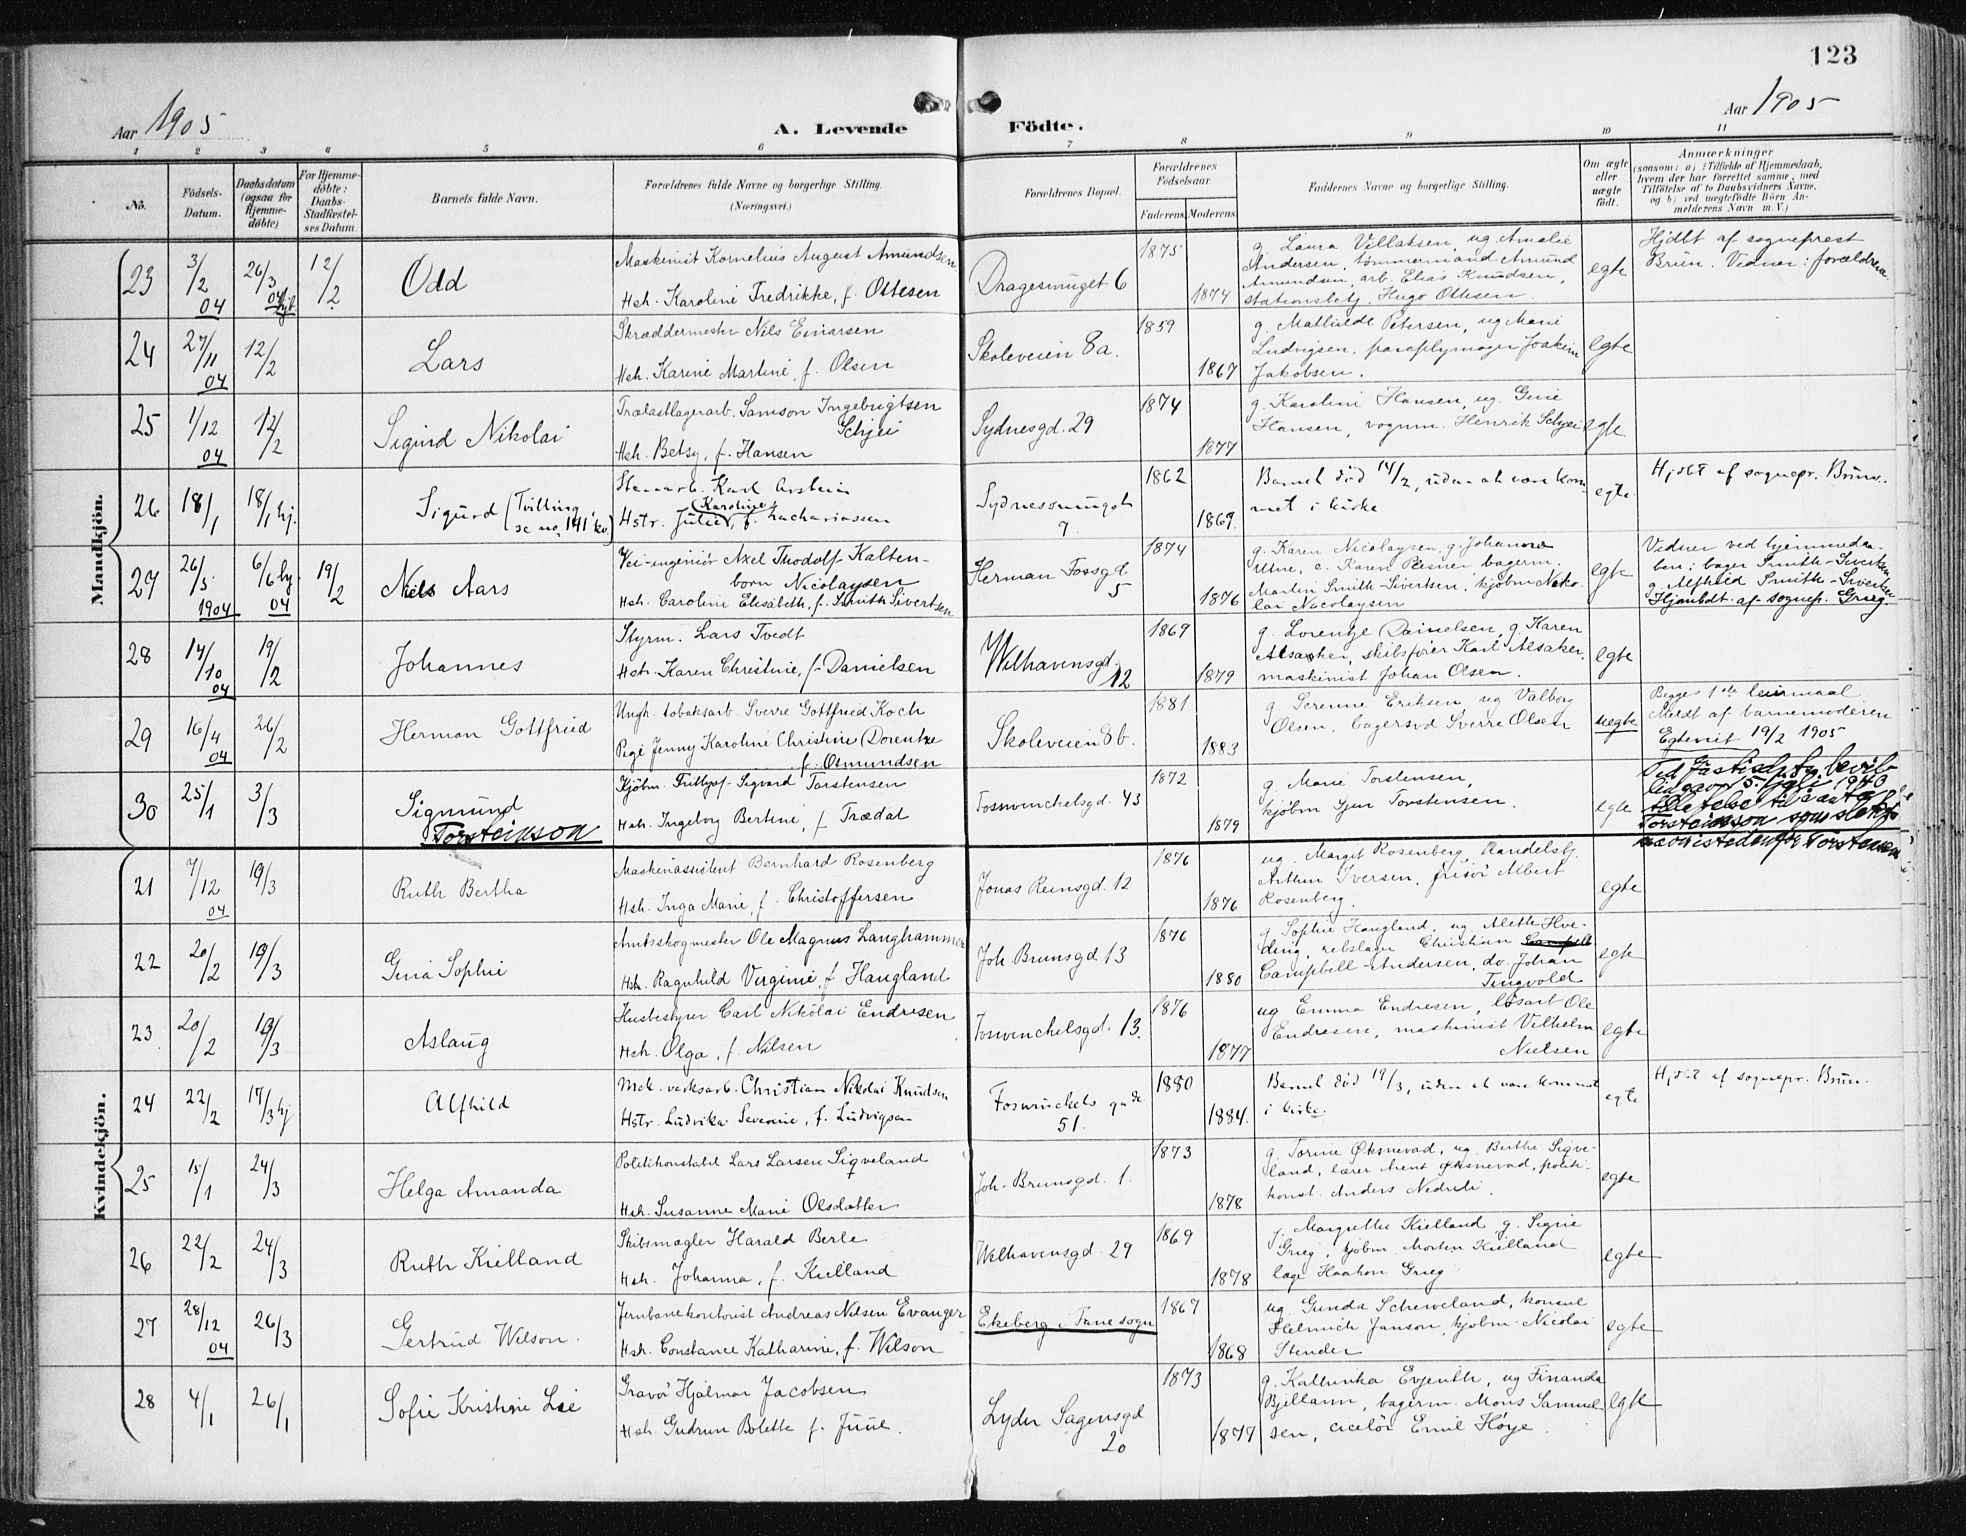 123
Aar 1905
A. Levende Födte.
Aar 1905
1 2 3 4 5 6 7 8 9 10 11
No.
Födsels-Datum.
Daabsdatum (ogsaa for Hjemmedöbte)
For Hjemmedöbte: Daabs-Stadfæstelses Datum
Barnets fulde Navn.
Forældrenes fulde Navne og borgerlige Stilling.
(Næringsvei.)
Forældrenes Bopæl.
Forældrenes Födselsaar.
Faderens Moderens
Faddernes Navne og borgerlige Stilling.
Om ægte eller uægte födt.
Anmærkninger
(saasom: a) i Tilfælde af Hjemmedaab, hvem der har forrettet samme, med Tilföielse af to Daabsvidners Navne, og b) ved uægtefödte Börn Anmelderens Navn m.V.)
Mandkjön.
23 3/2 04 26/3 04 hj. 12/2 Odd
Maskinist Kornelius August Amundsen
Hsh. Karoline Fredrikke, f. Ottesen
Dragesmuget 6 1875 1874
g. Laura Villaksen, ug. Amalie
Andersen, tømmermand Amund
Amundsen, arb. Elias Knudsen,
stationsbetj. Hugo Ottesen
egte
Hjdbt af sogneprest
Brun. Vidner: forældrene
24 27/11 04 12/2 Lars
Skræddermester Nils Einarsen
Hsh. Karine Martine, f. Olsen
Skoleveien 8a. 1859 1867
g. Mathilde Petersen, ug Marie
Ludvigsen, paraplymager Joakim
Jakobsen.
egte
25 1/12 04 12/2 Sigurd Nikolai
Trælastlagerarb. Samson Ingebrigtsen
Schjei
Hsh. Betsy, f. Hansen
Sydnesgd. 29 1874 1877
g. Karoline Hansen, ug. Gine
Hansen, vognm. Henrik Schjei
egte
26 18/1 18/1 hj. Sigurd (Tvilling
se no. 141 kv.)
Stenarb. Karl
Hstr. Julie (Karoline), f. Zachariassen
Sydnessmuget
7. 1862 1869.
Barnet død 14/2, uden at være kom-
met i kirke
egte
Hjdbt af sognepr. Brun.
27 26/5 1904 6/6 hj. 04 19/2 Niels Aars
Vei-ingeniør Axel Thodolf Kalten-
born Nicolaysen
Hsh. Caroline Elisabeth, f. Smith Sivertsen
Herman Fossgd.
5 1874 1876
g. Karen Nicolaysen, g. Johanne
Utne, e. Karen Plesner, bagerm.
Martin Smith-Sivertsen, kjøbm Niko-
lai Nicolaysen
egte
Vidner ved hjemmedaa-
ben: bager Smith-Sivertsen
g. Alfhild Smith-Sivertsen
Hjembdt. af sognep. Grieg.
28 14/10 04 19/2 Johannes
Styrm. Lars Tvedt
Hsh. Karen Christine, f. Danielsen
Welhavensgd.
12 1869 1879
g. Lorentze Danielsen, g. Karen
Alsaker, skibsfører Karl Alsaker,
maskinist Johan Olsen.
egte
29 16/4 04 26/2 Herman Gottfried
Ungk. tobaksarb. Sverre Gottfried Koch
Pige Jenny Karoline Christine Dorentze
f. Osmundsen
Skoleveien 8b. 1881 1883
g. Serenne Eriksen, ug Valborg
Olsen, bagersvd Sverre Olsen
uegte
Begges 1ste leiermaal
Meldt af barnemoderen
Egteviet 19/2 1905
30 25/1 3/3 Sigmund
Torsteinson
Kjøbm. Frithjof Sigurd Torstensen
Hsh. Ingeborg Bertine, f Trædal
Fosswinckelsgd. 43 1872 1879
g. Marie Torstensen,
kjøbm Torstensen.
egte
Ved Justisdep. bevil-
ling av 5. juli 1943
tillatelse til å anta
Torsteinson som slekts-
navn istedenfor Torstensen
Kvindekjön.
21 7/12 04 19/3 Ruth Bertha
Maskinassistent Bernhard Rosenberg
Hsh. Inga Marie, f. Christoffersen
Jonas Reinsgd. 12 1876 1876
ug. Margit Rosenberg, Handelsbj.
Arthur Iversen, frisør Albert
Rosenberg.
egte
22 20/2 19/3 Gina Sophie
Amtsskogmester Ole Magnus Langhammer
Hsh. Ragnhild Virginie, f. Haugland
Joh. Brunsgd 13 1876 1880
g Sophie Haugland, ug. Alette Hve-
ding, rebslager Christian
Campbell-Andersen, do. Johan
Tingvold
egte
23 20/2 19/3 Aslaug
Husbestyrer Carl Nikolai Endresen
Hsh. Olga, f. Nilsen
Fosswinckelsgd. 13. 1876 1877
ug Emma Endresen, løsarb Ole
Endresen, maskinist Vilhelm
Nielsen
egte
24 22/2 17/3 hj Alfhild
Mek. verksarb. Christian Nikolai Knudsen
Hstr. Ludvika Severine, f. Ludvigsen
Foswinckels gade
51. 1880 1884.
Barnet død 19/3, uden at være kommet
i kirke.
egte
Hjdbt af sognepr. Brun.
25 15/1 24/3 Helga Amanda
Politikonstabel Lars Larsen Sigveland
Hsh. Susanne Marie Olsdatter
Joh. Brunsgd. 1. 1873 1878
g. Torine Øksnevad, ug. Berthe Sigve-
land, lærer Arent Øksnevad, politi-
konst. Anders Nedreli.
egte
26 22/2 24/3 Ruth Kielland
Skibsmægler Harald Berle
Hsh. Johanna, f. Kielland
Welhavensgd. 29 1869 1878
f. Margrethe Kielland g. Signe
Grieg, kjøbm. Morten Kielland
læge Haakon Grieg
egte
27 28/12 04 26/3 Gertrud Wilson.
Jernbanekontorist Andreas Nilsen Evanger
Hsh. Constance Katharine, f. Wilson
Ekeberg i Fane sogn 1867 1868
ug. Gunda Scheweland, konsul
Helmich Janson, kjøbm. Nicolai
Stender
egte
28 4/1 26/1 Sofie Kristine Lie
Gravør Hjalmar Jacobsen
Hsh. Gudrun Bolette f. Juul.
Lyder Sagensgd
20 1873 1877
g. Kathinka Evjenth, ug Finanda
Bjellann, bagerm. Mons Samuel-
sen, ciselør Emil Høye.
egte